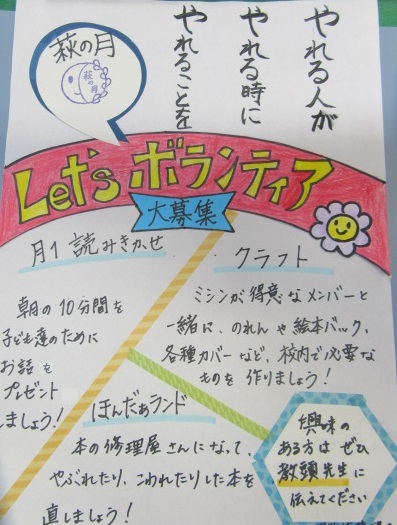 やれる人が
やれる時に
やれることを
萩の月
萩の月
Let's ボランティア
大募集
月1 読みきかせ
朝の10分間を
子ども達のために
お話を
プレゼント
しましょう!
クラフト
ミシンが得意なメンバーと
一緒に、のれんや絵本バック、
各種カバーなど、校内で必要な
ものを作りましょう!
ほんだぁランド
本の修理屋さんになって、
やぶれたり、こわれたりした本を
直しましょう!
興味の
ある方は ぜひ
教頭先生に
伝えてください